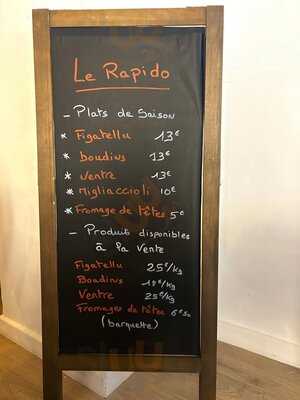 Le Rapido
- Plats de Saison
* Figatellu 13€
* boudins 13€
* ventre 13€
* Migliaccioli 10€
* Fromage de têtes 5€
- Produits disponibles
à la vente
Figatellu 25€/kg
Boudins 19€/kg
Ventre 25€/kg
Fromages de têtes 6€50
(barquette)